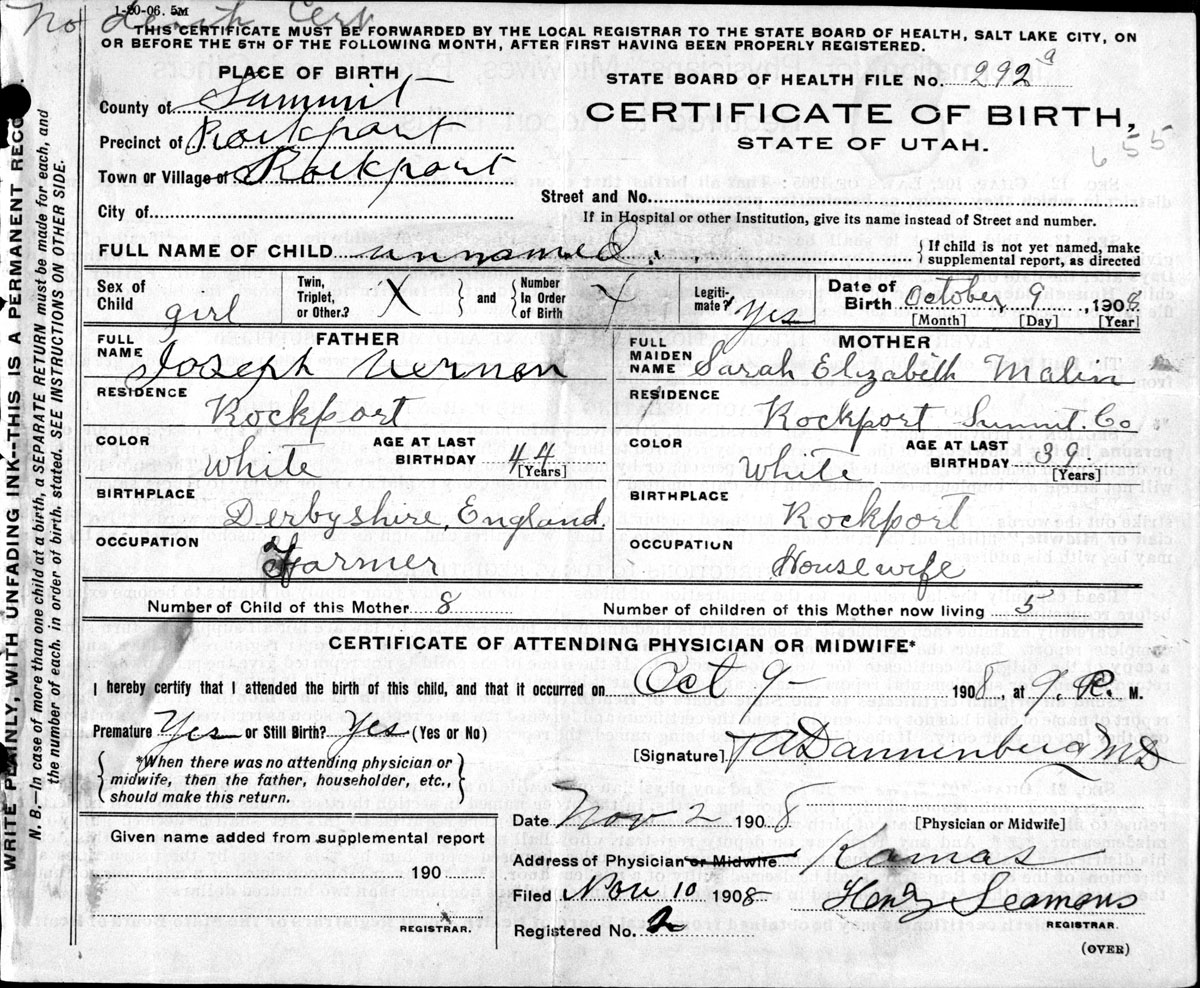 No Death Cert
1-20-06. 5M
THIS CERTIFICATE MUST BE FORWARDED BY THE LOCAL REGISTRAR TO THE STATE BOARD OF HEALTH, SALT LAKE CITY, ON
OR BEFORE THE 5TH OF THE FOLLOWING MONTH, AFTER FIRST HAVING BEEN PROPERLY REGISTERED.
PLACE OF BIRTH
STATE BOARD OF HEALTH FILE No. 292 a
County of Summit
CERTIFICATE OF BIRTH,
Precinct of Rockport
STATE OF UTAH.
655
Town or Village of Rockport
Street and No.
City of
If in Hospital or other Institution, give its name instead of Street and number.
FULL NAME OF CHILD unnamed
{ If child is not yet named, make
supplemental report, as directed
Sex of Child girl
Twin, Triplet, or Other? X } and { Number In Order of Birth X
Legiti-mate? Yes
Date of Birth October 9, 1908
[Month] [Day] [Year]
FATHER
FULL NAME Joseph Vernon
RESIDENCE Rockport
COLOR White AGE AT LAST BIRTHDAY 44 [Years]
BIRTHPLACE Derbyshire, England
OCCUPATION Farmer
MOTHER
FULL MAIDEN NAME Sarah Elizabeth Malin
RESIDENCE Rockport Summit. Co
COLOR White AGE AT LAST BIRTHDAY 39 [Years]
BIRTHPLACE Rockport
OCCUPATION Housewife
Number of Child of this Mother 8
Number of children of this Mother now living 5
CERTIFICATE OF ATTENDING PHYSICIAN OR MIDWIFE*
I hereby certify that I attended the birth of this child, and that it occurred on Oct 9- 1908, at 9 P. M.
Premature Yes or Still Birth? Yes (Yes or No)
{ *When there was no attending physician or
midwife, then the father, householder, etc.,
should make this return. }
[Signature] Dannenberg MD
[Physician or Midwife]
Date Nov 2 1908
Given name added from supplemental report
190
REGISTRAR.
Address of Physician or Midwife Kamas
Filed Nov 10 1908 Henry Seamons
REGISTRAR.
Registered No. 2
(OVER)
WRITE PLAINLY, WITH UNFADING INK--THIS IS A PERMANENT RECO
N. B.—In case of more than one child at a birth, a SEPARATE RETURN must be made for each, and
the number of each, in order of birth, stated. SEE INSTRUCTIONS ON OTHER SIDE.